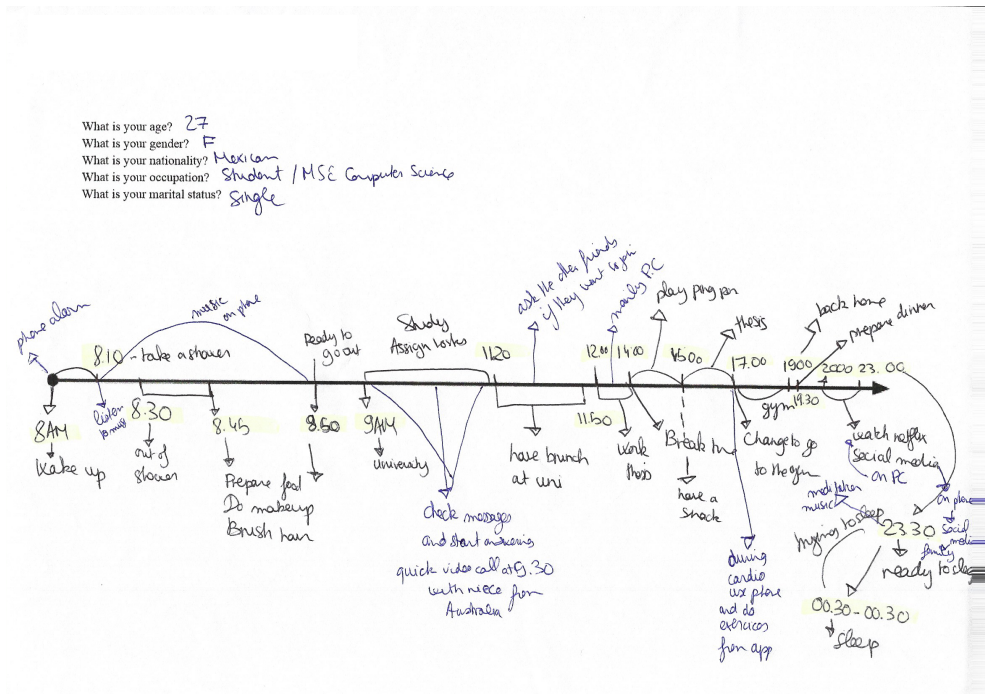 What is your age? 27
What is your gender? F
What is your nationality? Mexican
What is your occupation? Student / MSE Computer Science
What is your marital status? Single
phone alarm
8AM
Wake up
8.10 - take a shower
listen
to music
music
on phone
8.30
out of
shower
8.45
Prepare food
Do makeup
Brush hair
Ready to
go out
8.50
9AM
University
Study
Assign works
check messages
and start answering
quick video call at 9.30
with niece from
Australia
11.20
ask the other friends
if they want to join
have brunch
at uni
11.50
12.00
mainly PC
work
thesis
14.00
play ping pon
Break time
have a
snack
15.00
thesis
17.00
Change to go
to the gym
during
cardio
use phone
and do
exercices
from app
gym
19.00
back home
19.30
prepare dinner
20.00
23.00
watch netflix
Social media
on PC
on phone
social
media
family
meditation
music
trying to sleep
23.30
ready to sleep
00.30 - 00.30
Sleep